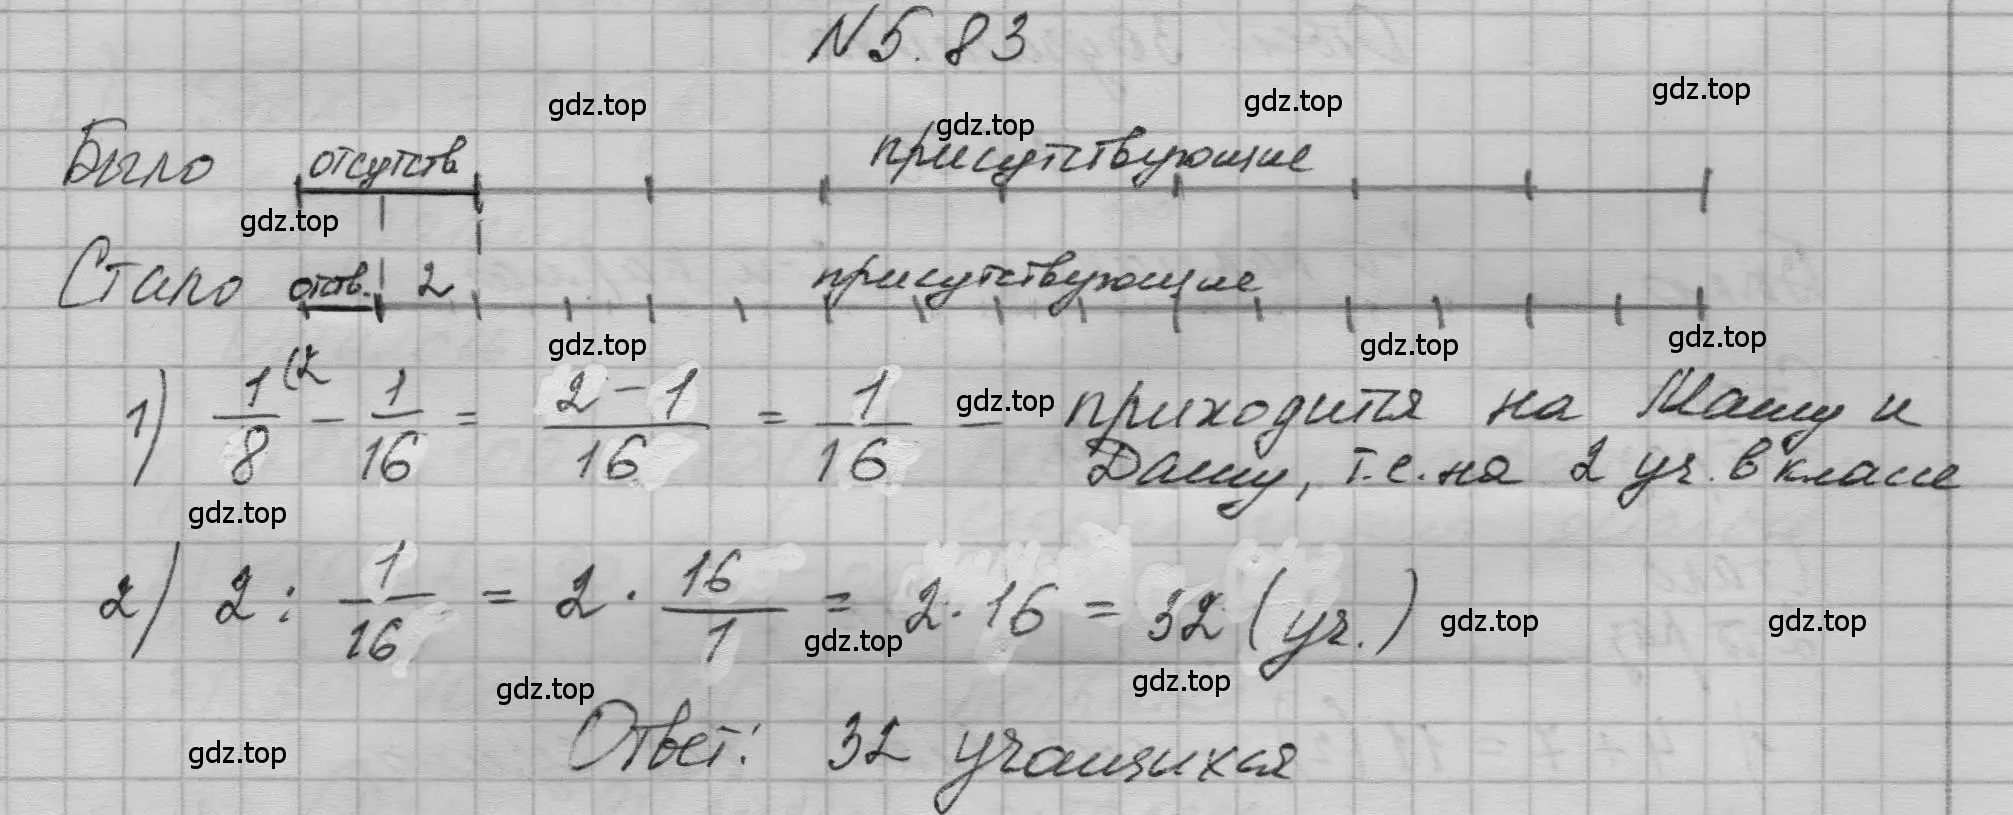 N 5.83
gdz.top gdz.top gdz.top gdz.top
Было отсутств присутствующие
gdz.top
Стало отств. 2 присутствующие
gdz.top gdz.top gdz.top
1) 1/8 (2 - 1/16 = 2-1/16 = 1/16 gdz.top — приходится на Машу и
Дашу, т.е. на 2 уч. в классе
gdz.top
2) 2 : 1/16 = 2 · 16/1 = 2·16 = 32 (уч.)
gdz.top gdz.top gdz.top
gdz.top gdz.top
Ответ: 32 учащихся
gdz.top